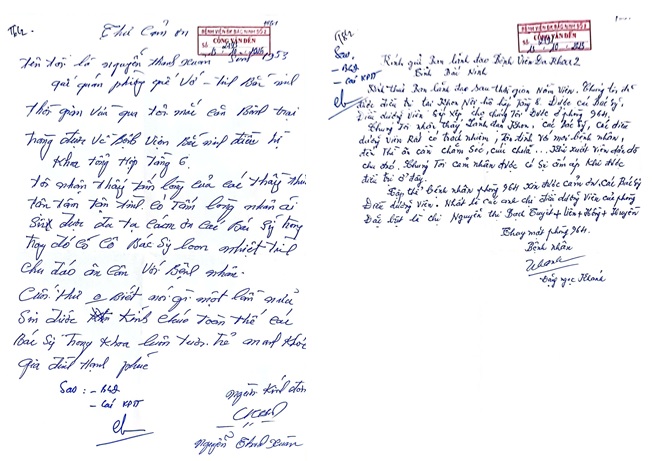 Thư Cảm ơn
BỆNH VIỆN ĐK BẮC NINH SỐ 2
CÔNG VĂN ĐẾN
Tên tôi là nguyễn thanh Xuân Sinh 1953
quê quán phường quế Võ - tỉnh Bắc ninh
thời gian vừa qua tôi mắc căn Bệnh trai
tràng được về Bệnh Viện Bắc ninh điều trị
Khoa tổng Hợp Tầng 6.
tôi nhận thấy tấm lòng của các thầy thuốc
tận tâm tận tình. có Tấm lòng nhân ái
Sin được đa tạ cảm ơn các Bác Sỹ trong
này đó có Cô Bác Sỹ loan nhiệt tình
chu đáo ân cần Với Bệnh nhân.
Cuối thư Biết nói gì một lần nữa
Sin được Kính chúc toàn thể các
Bác Sỹ trong Khoa luôn tươi trẻ mạnh Khỏe
gia đình Hạnh phúc
Sao: - BGĐ
người Kính đơn
nguyễn Thanh Xuân
BỆNH VIỆN ĐK BẮC NINH SỐ 2
CÔNG VĂN ĐẾN
Sao:
- BGĐ
Kính gửi Ban Lãnh đạo Bệnh Viện Đa Khoa 2
Tỉnh Bắc Ninh
Kính thưa Ban Lãnh đạo sau thời gian Nằm Viện. Chúng tôi
được điều trị tại Khoa Nội hô hấp tầng 6. Được các Bác Sỹ,
Điều dưỡng viên sắp xếp cho chúng tôi được ở phòng 964.
Chúng Tôi nhận thấy, Lãnh đạo Khoa, các Bác Sỹ, các điều
dưỡng viên Rất có trách nhiệm, với mọi bệnh nhân,
ân cần chăm Sóc, cứu chữa...
chu đáo. Chúng Tôi cảm nhận được có Sự ấm áp khi được
điều trị ở đây.
Tập thể Bệnh nhân phòng 964 Xin được cảm ơn. Các Bác Sỹ
Điều dưỡng Viên. Nhất là các anh chị Điều dưỡng Viên của phòng
Đặc biệt là chị Nguyễn thị Bạch Tuyết + Viên + Hồng + Huyền
Thay mặt phòng 964.
Bệnh nhân
Khanh
Đặng Ngọc Khanh